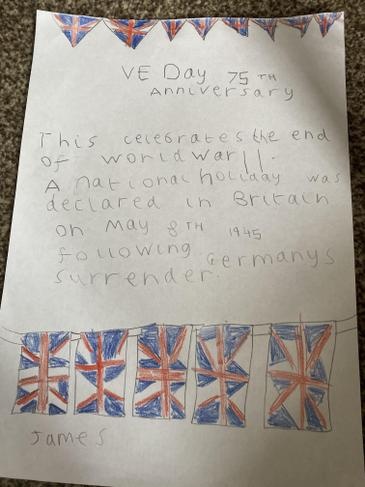 VE Day 75TH
Anniversary
This celebrates the end
of world war II.
A national holiday was
declared in Britain
on May 8TH 1945
following Germanys
surrender.
James